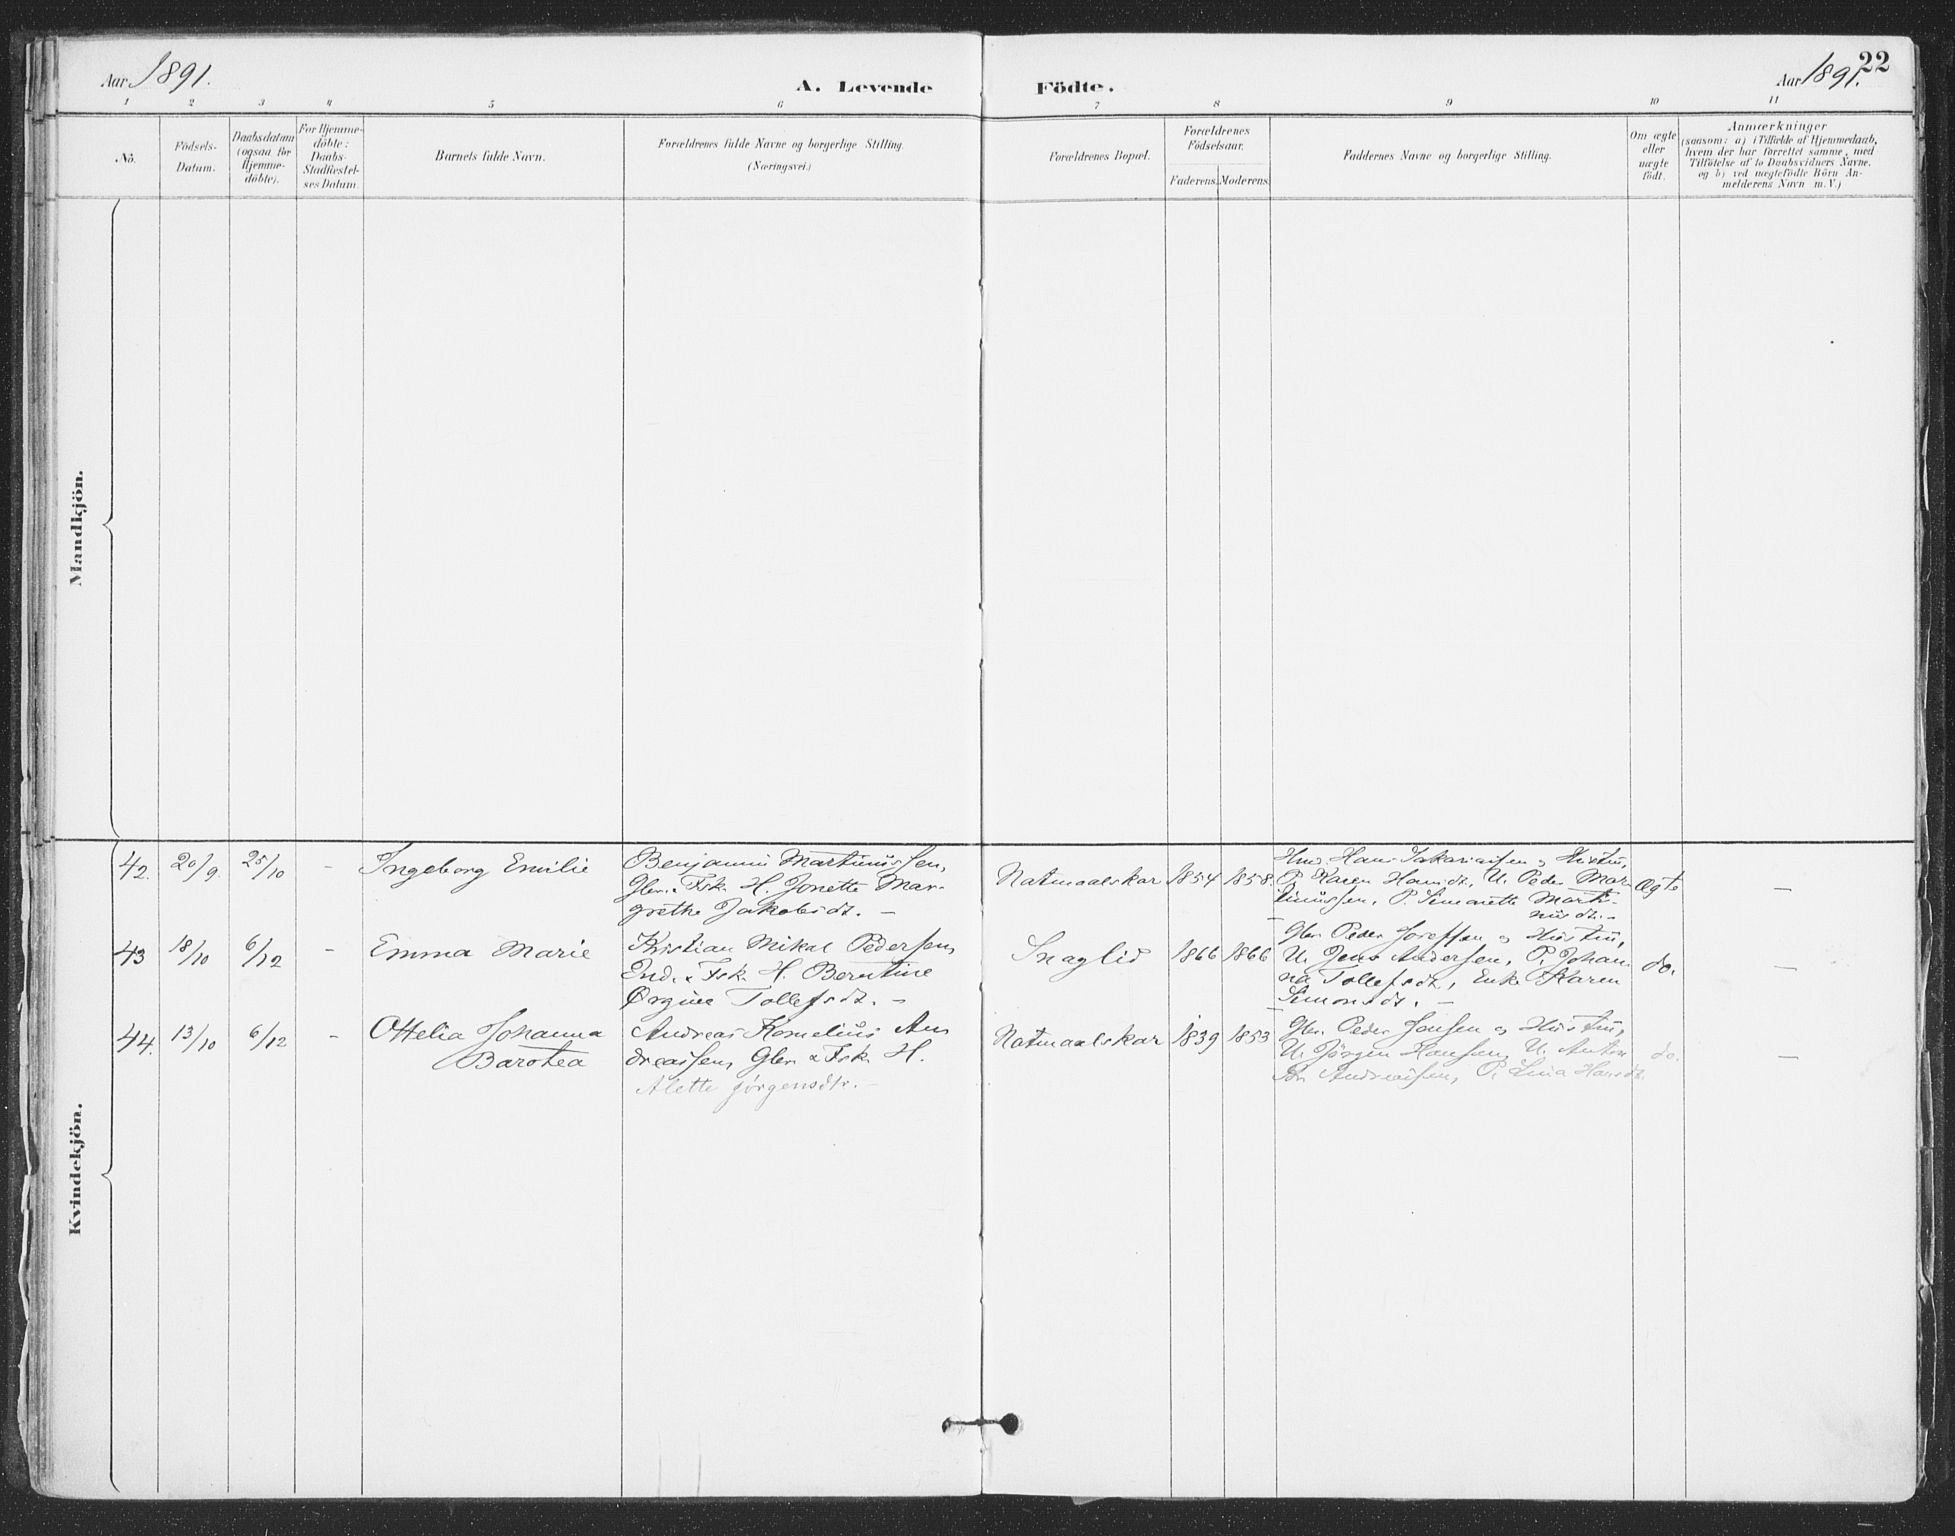 Aar 1891.
A. Levende Födte.
Aar 1891.
22
1 2 3 4 5 6 7 8 9 10 11
Nò.
Födsels-
Datum.
Daabsdatum
(ogsaa for
Hjemme-
döbte).
For Hjemme-
döbte:
Daabs-
Stadfæstel-
ses Datum.
Barnets fulde Navn.
Forældrenes fulde Navne og borgerlige Stilling.
(Næringsvei.)
Forældrenes Bopæl.
Forældrenes
Födselsaar.
Faderens. Moderens.
Faddernes Navne og borgerlige Stilling.
Om ægte
eller
uægte
födt.
Anmærkninger
(saasom: a) i Tilfælde af Hjemmedaab,
hvem der har forrettet samme, med
Tilföielse af to Daabsvidners Navne.
og b) ved uægtefödte Börn An-
melderens Navn m. V.)
Mandkjön.
Kvindekjön.
42. 20/9 25/10 - Ingeborg Emilie
Benjamin Martinussen,
Gbr. & Fsk. H. Jonette Mar-
grethe Jakobsdt. -
Natmaalskar 1854 1858.
Hmd. Hans Sakariassen og Hustru,
P. Karen Hansdt., U. Peder Mar-
tinussen, P. Simonette Marti-
nusdt. -
Ægte -
43 18/10 6/12 - Emma Marie
Kristian Mikal Pedersen,
Ind. & Fsk. H. Berntine
Ørgine Tollefsdt. -
Snaglid 1866 1866
Gbr. Peder Joseffsen og Hustru,
U. Jens Andersen, P. Johan-
na Tollefsdt., Enke Karen
Simonsdt. -
do. -
44. 13/10 6/12 - Ottelia Johanna
Barotea
Andreas Kornelius An
dreassen, Gbr. & Fsk. H.
Alette Jørgensdtr. -
Natmaalskar 1839 1853
Gbr. Peder Jensen og Hustru,
U. Jørgen Hansen, U. Anton
Andreassen, P. Lina Hansdt.
do. -